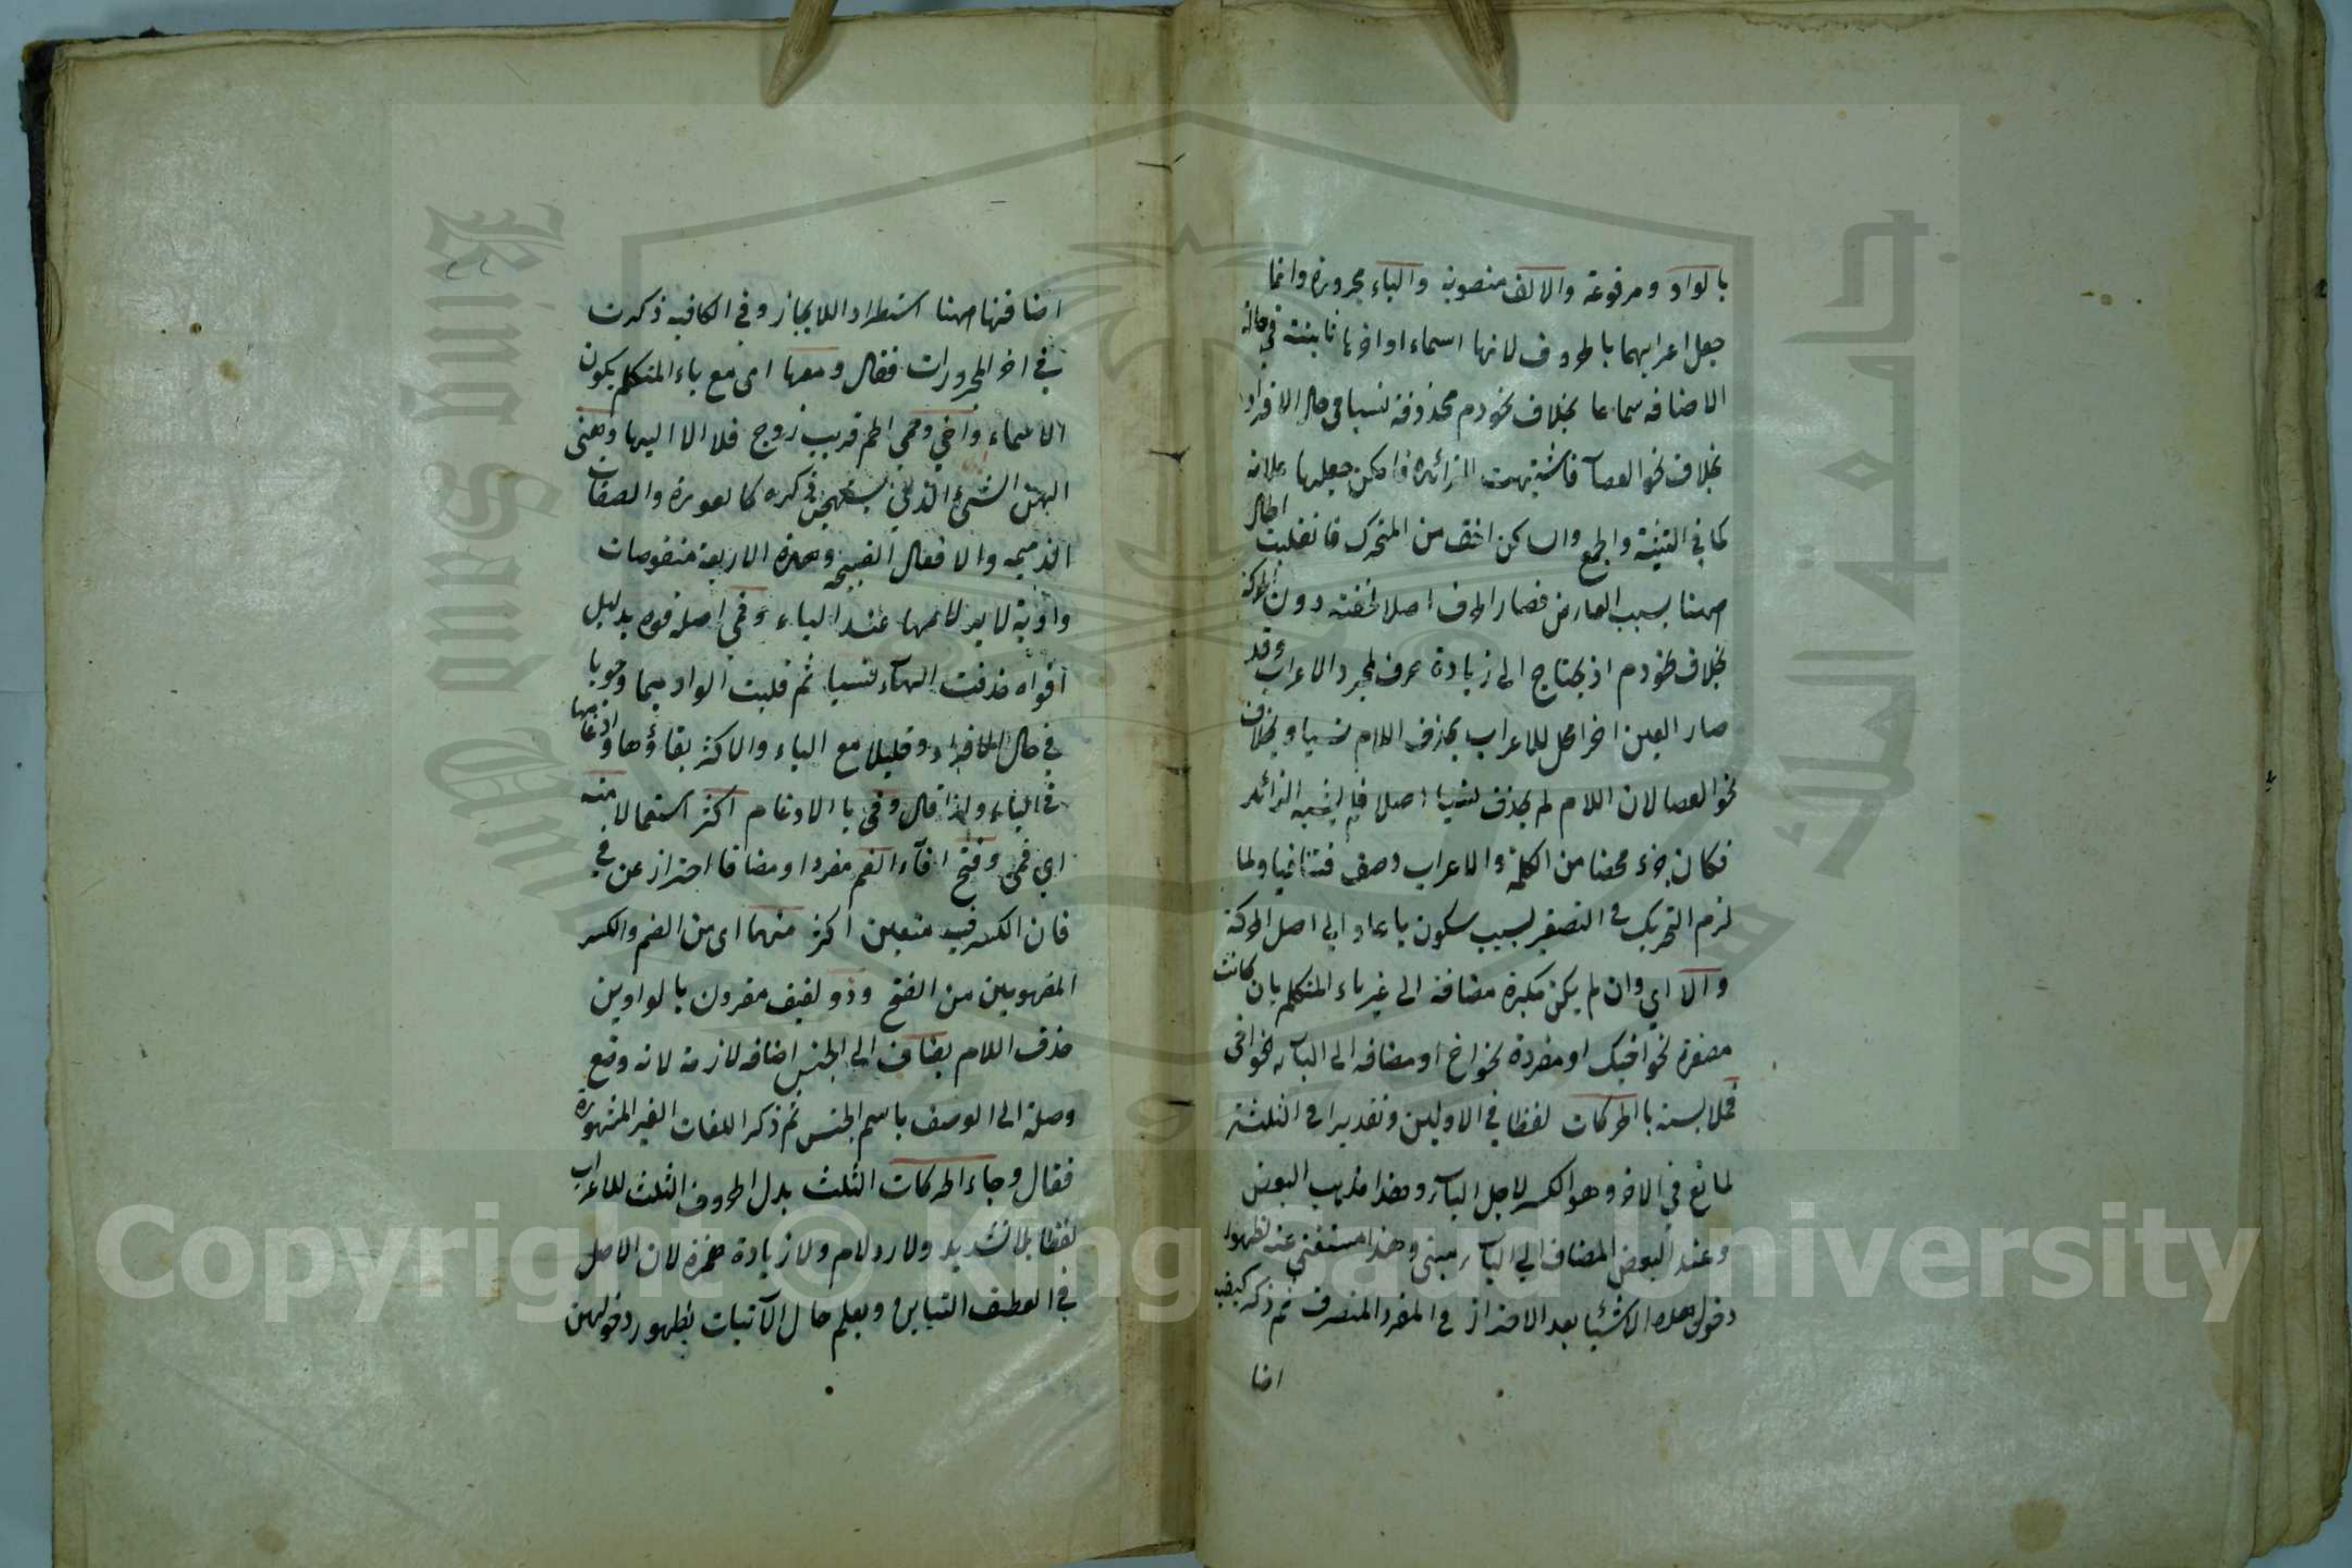 بالواو ومرفوعة والالف منصوبة والياء مجرورة وانما
جعل اعرابهما بالحروف لانها اسماء اواخرها ثابتة في حالة
الاضافه سماعا بخلاف نحو دم محذوفة نسيا في حال الافراد
بخلاف نحو العصا فاشتبهت الزائده فامكن جعلها علامة
كما في التثنية والجمع والساكن اخف من المتحرك فانقلبت الحال
ههنا بسبب العارض فصار الحرف اصلا لخفته دون الحركة
بخلاف نحو دم اذ يحتاج الى زيادة حرف لمجرد الاعراب وقد
صار العين اخرا محل للاعراب بحذف اللام نسيا وبخلاف
نحو العصا لان اللام لم يحذف نسيا اصلا فلم يشبه الزائد
فكان جزء محضا من الكلمة والاعراب وصف فتنافيا ولما
لزم التحريك في التصغير بسبب سكون ياء عاد الى اصل الحركة
والا اي وان لم يكن مكبرة مضافة الى غير ياء المتكلم بان كانت
مصغرة نحو اخيك او مفردة نحو اخ او مضافه الى الياء نحو اخي
فملابسة بالحركات لفظا في الاولين وتقديرا في الثلثة
لمانع في الاخر وهو الكسر لاجل الياء وهذا مذهب البعض
وعند البعض المضاف الى الياء مبنى وهذا مستغنى عنه لظهور
دخول هذه الاشيا بعد الاحتراز في المفرد المنصرف ثم ذكر كيفية
اضا
اضافتها ههنا استطراد اللايجاز وفي الكافيه ذكرت
في اخر المجرورات فقال ومعها اى مع ياء المتكلم يكون
الاسماء واخي وحمي الحم قريب زوج فلا الا اليها وهنى
الهن الشئ الذي يستهجن ذكره كالعورة والصفات
الذميمه والافعال القبيحه وهذه الاربعة منقوصات
واوية لا يرد لامها عند الياء وفمي اصله فوه بدليل
افواه حذفت الهاء نسيا ثم قلبت الواو ميما وجوبا
في حال الافراد وقليلا مع الياء والاكثر بقاؤها وادغامها
في الياء ولذا قال وفي بالادغام اكثر استعمالا منه
اي فمي وفتح افاء الفم مفردا ومضافا احتراز عن في
فان الكسر فيه متعين اكثر منهما اى من الضم والكسر
المفهومين من الفتح وذو لفيف مقرون بالواوين
حذف اللام يضاف الى الجنس اضافه لازمة لانه وضع
وصلة الى الوصف باسم الجنس ثم ذكر اللغات الغير المشهورة
فقال وجاء الحركات الثلث بدل الحروف الثلث للاعراب
لفظا بلا تشديد ولا رد لام ولا زيادة همزة لان الاصل
في العطف التباين ويعلم حال الآتيات بظهور دخولهن
Copyright © King Saud University
King Saud University
جامعة الملك سعود
1957